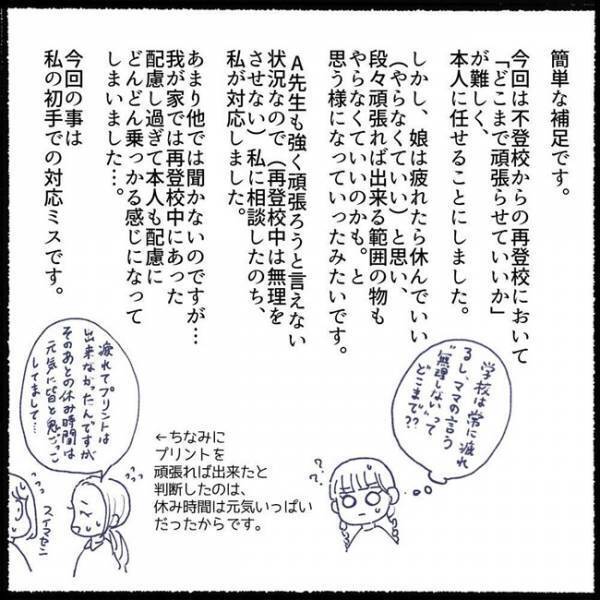 簡単な補足です。
今回は不登校からの再登校において
「どこまで頑張らせていいか」
が難しく、
本人に任せることにしました。
しかし、娘は疲れたら休んでいい
（やらなくていい）と思い、
段々頑張れば出来る範囲の物も
やらなくていいのかも。と
思う様になっていったみたいです。
A先生も強く頑張ろうと言えない
状況なので（再登校中は無理を
させない）私に相談したのち、
私が対応しました。
あまり他では聞かないのですが…
我が家では再登校中にあった
配慮し過ぎて本人も配慮に
どんどん乗っかる感じになって
しまいました…。
今回の事は
私の初手での対応ミスです。
学校は常に疲れ
るし、ママの言う
"無理しない"って
どこまで??
???
←ちなみに
プリントを
頑張れば出来たと
判断したのは、
休み時間は元気いっぱい
だったからです。
疲れてプリントは
出来なかったんですが
そのあとの休み時間は
元気に皆と鬼ごっこ
してまして…
スイマセン